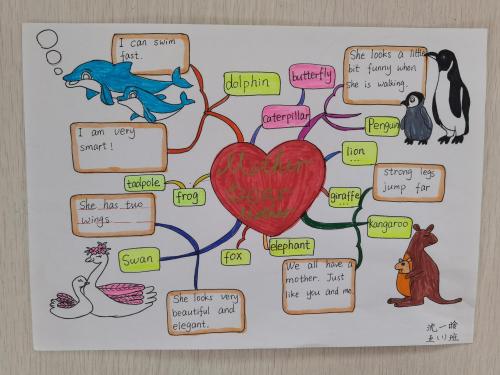 I can swim
fast.
dolphin
butterfly
caterpillar
She looks a little
bit funny when
she is walking.
Penguin
I am very
smart!
Mother
Dear
Mother
lion
...
giraffe
...
strong legs
jump far
tadpole
frog
She has two
wings
kangaroo
Swan
fox
elephant
We all have a
mother. Just
like you and me.
She looks very
beautiful and
elegant.